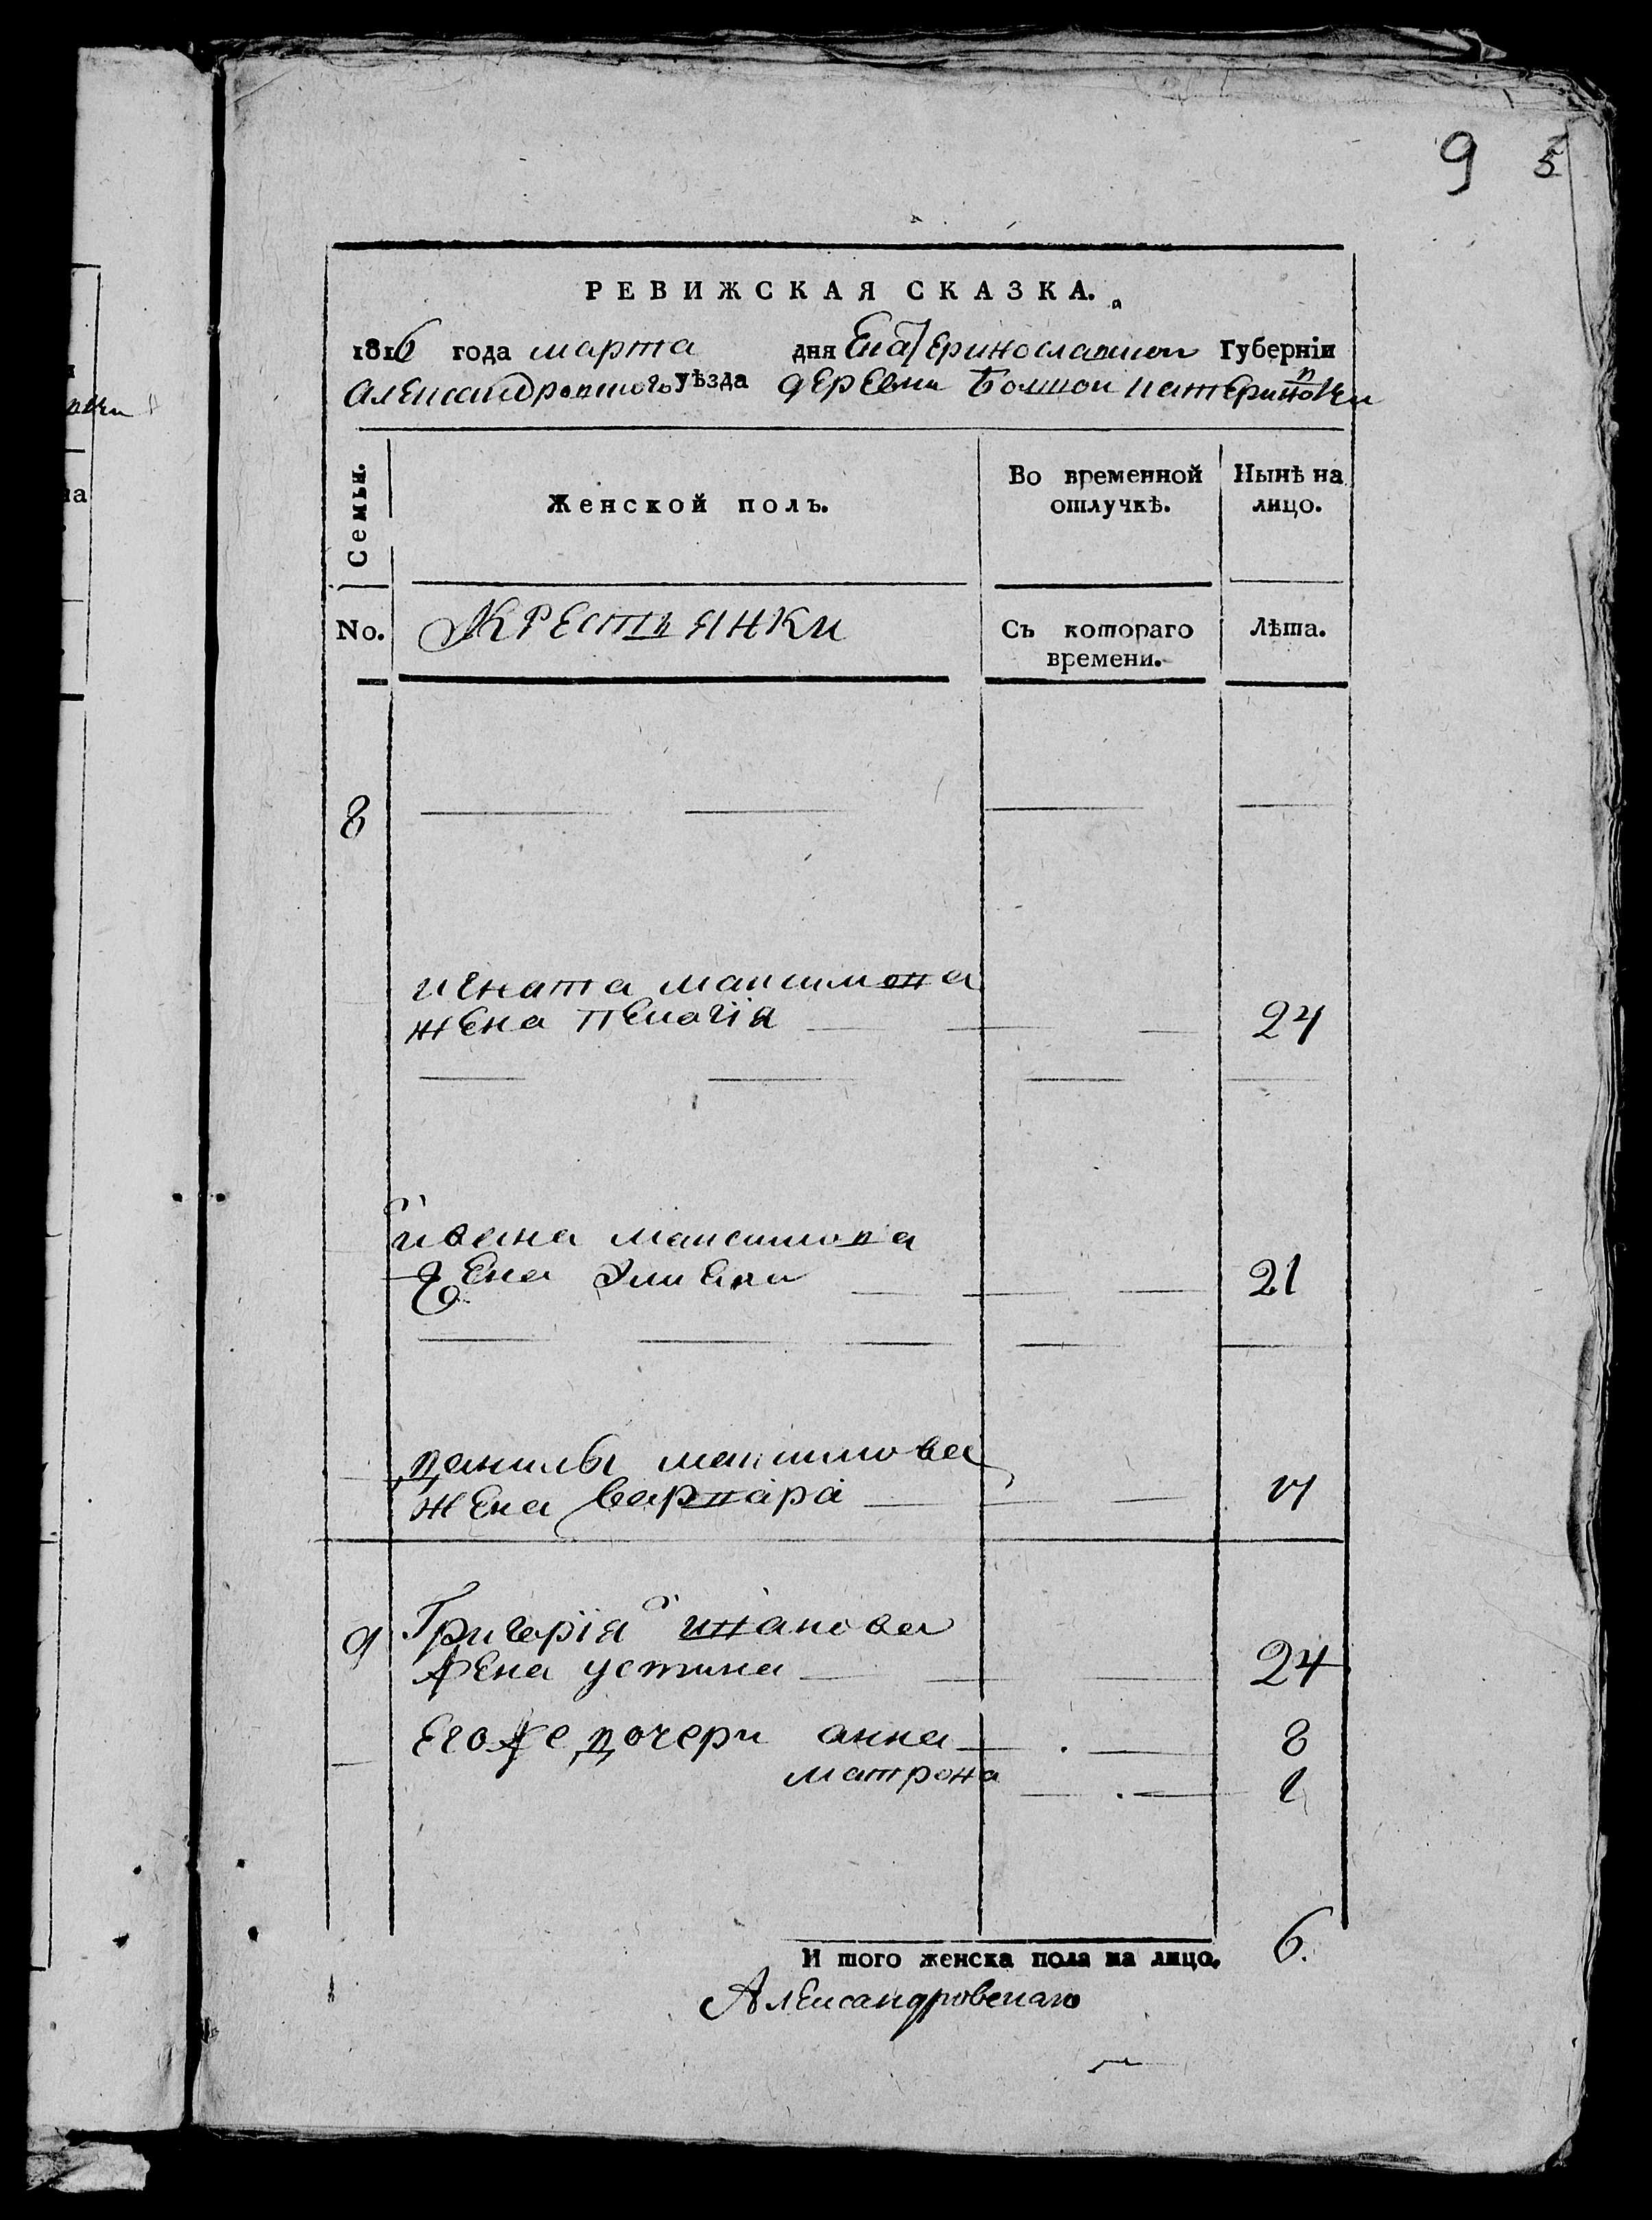 9 5
РЕВИЖСКАЯ СКАЗКА.
1816 года марта дня Екатеринославской Губернiи
Александровского уѣзда деревни Болшой катериновки
Семьи. Женской полъ. Во временной отлучкѣ. Нынѣ на лицо.
No. Крестьянки Съ котораго времени. Лѣта.
8
игната максимова
жена пелагiя 24
ивана максимова
жена 21
данилы максимова
жена варвара
9 Григорiя иванова
жена устина 24
Егоже дочери анна 8
матрона 1
И того женска пола на лицо. 6.
Александровскаго